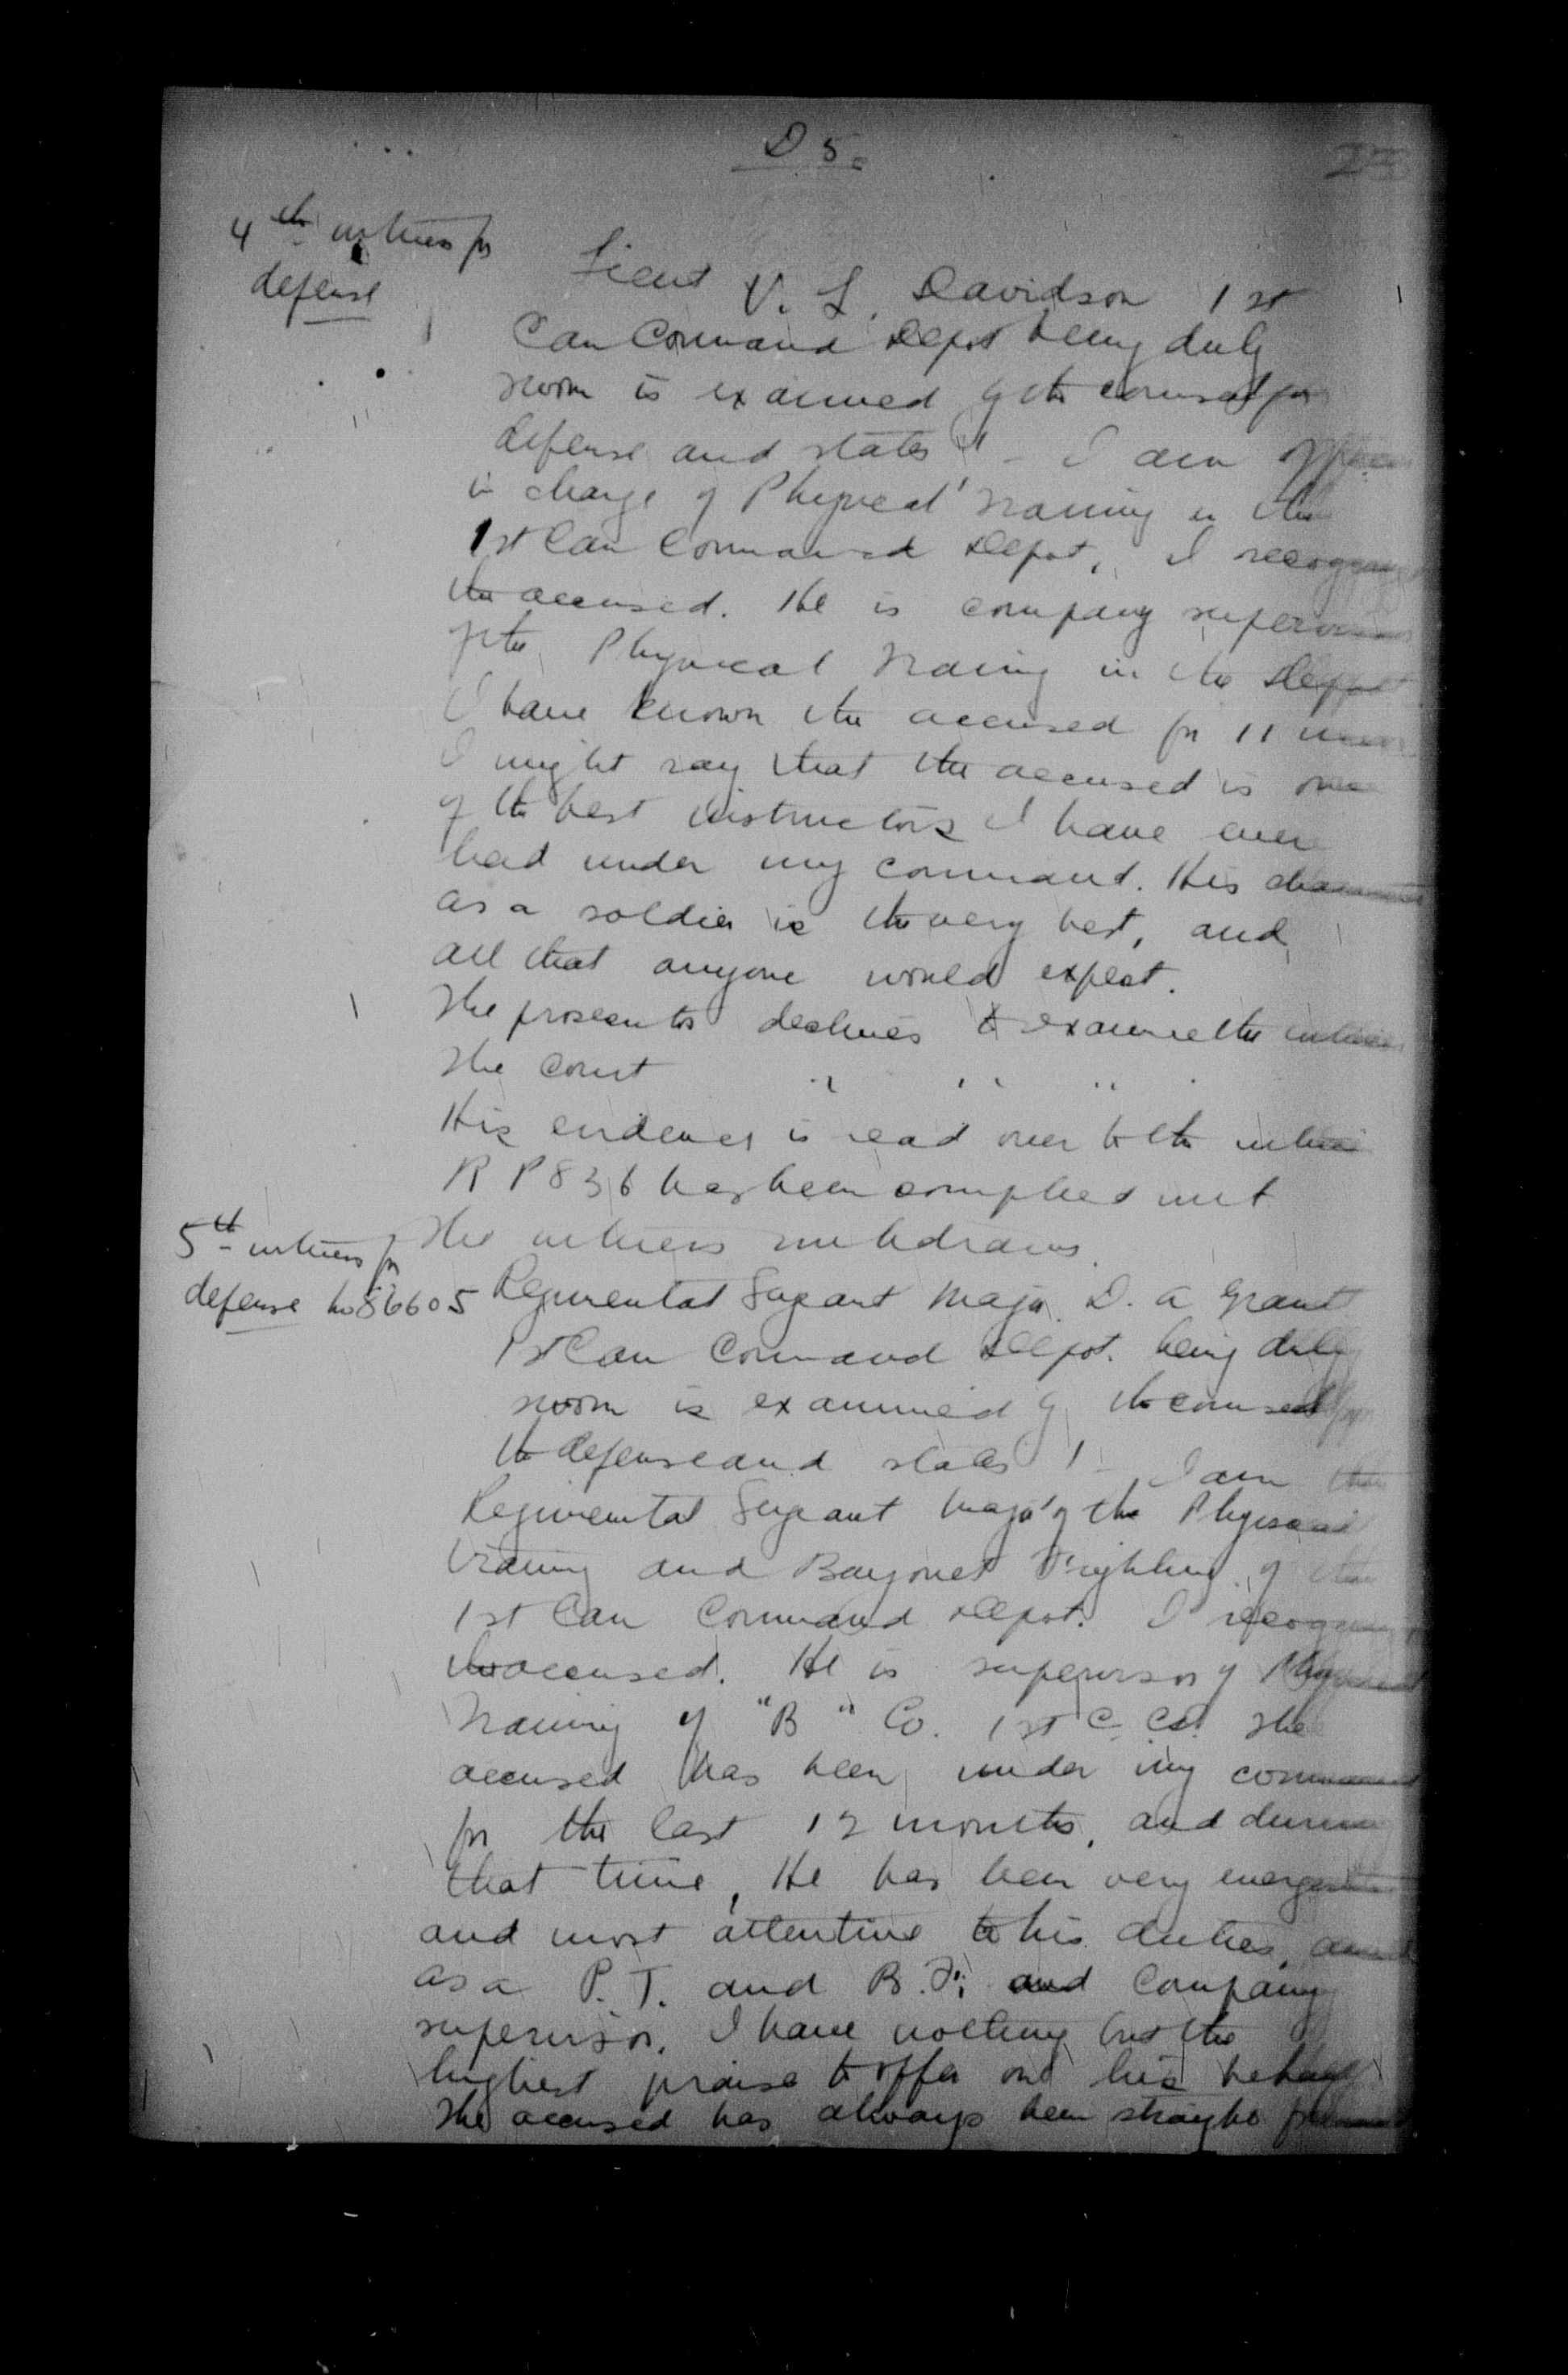 D 5.
23
4th witness for
defense
Lieut V. L. Davidson 1st
Can Command Depot being duly
sworn is examined by the counsel for
defense and states :- I am Officer
in charge of Physical Training in the
1st Can Command Depot, I recognize
the accused. He is company supervisor
of the Physical Training in the Depot
I have known the accused for 11
I might say that the accused is one
of the best instructors I have ever
had under my command. His character
as a soldier is the very best, and
all that anyone would expect.
The prosecutor declines to examine the witness
The Court " " "
His evidence is read over to the witness
R P 83 b has been complied with
The witness withdraws.
5th witness for
defense No 86605 Regimental Sergeant Major D. A Grant
1st Can Command Depot. being duly
sworn is examined by the counsel for
the defense and states :- I am the
Regimental Sergeant Major of the Physical
Training and Bayonet Fighting of the
1st Can Command Depot. I recognize
the accused. He is supervisor of Physical
Training of "B" Co. 1st C. C.D. The
accused has been under my command
for the last 12 months, and during
that time, He has been very energetic
and most attentive to his duties, and
as a P. T. and B. F. and Company
supervisor. I have nothing but the
highest praise to offer on his behalf
The accused has always been straight